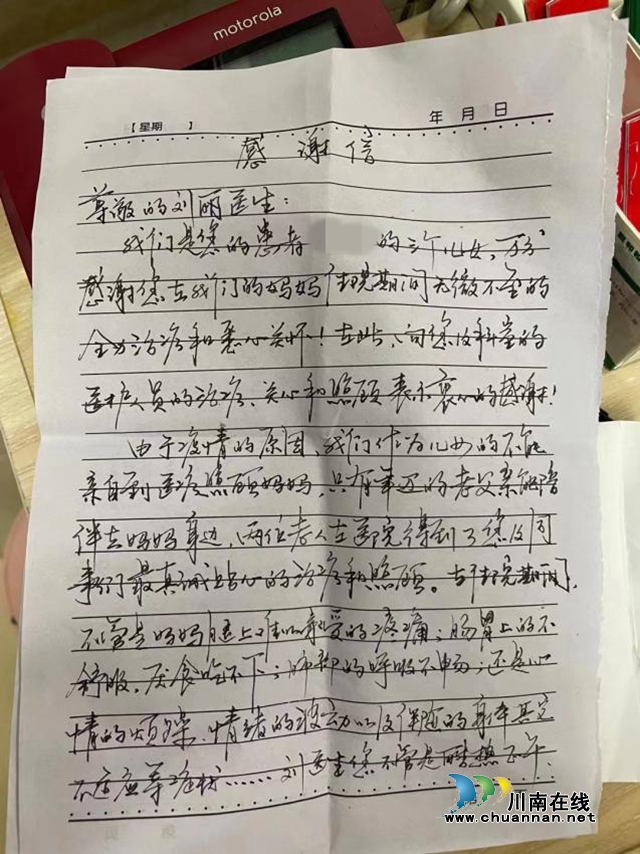 motorola
【星期 】 年 月 日
感谢信
尊敬的刘丽医生：
我们是您的患者 的三个儿女，万分
感谢您在我们的妈妈住院期间无微不至的
全力治疗和悉心关怀！在此，向您及科室的
医护人员的治疗、关心和照顾表示衷心的感谢！
由于疫情的原因，我们作为儿女的不能
亲自到医院照顾妈妈，只有年迈的老父亲能陪
伴在妈妈身边，两位老人在医院得到了您及同
事们最真诚贴心的治疗和照顾。在住院期间，
不管是妈妈腿上难以承受的疼痛；肠胃上的不
舒服，饮食吃不下；肺部的呼吸不畅；还是心
情的烦躁、情绪的波动以及伴随的身体其它
不适应等症状……刘医生您不管是酷热正午、
川南在线
www.chuannan.net